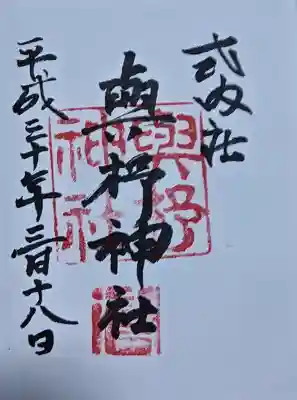 式内社
與杼神社
平成三十年三月十八日
與杼
神社